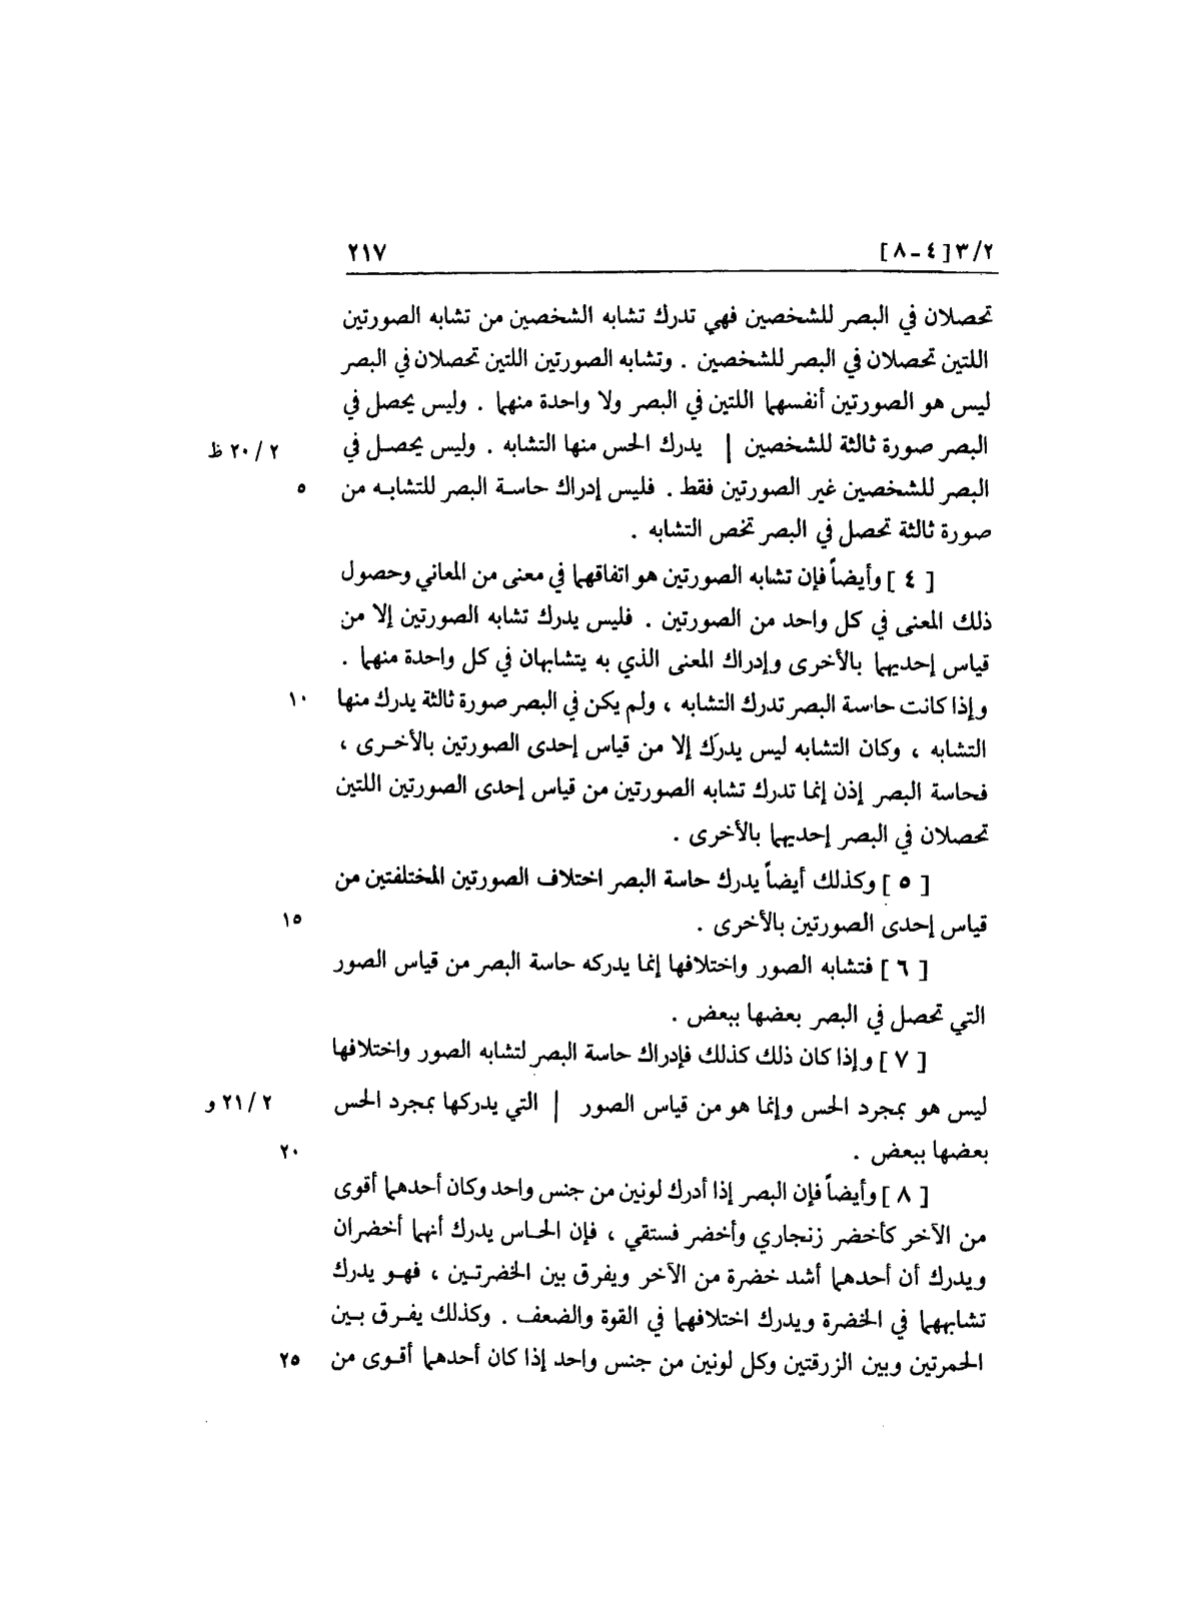 ٣/٢ [٤ - ٨] ٢١٧
تحصلان في البصر للشخصين فهي تدرك تشابه الشخصين من تشابه الصورتين
اللتين تحصلان في البصر للشخصين . وتشابه الصورتين اللتين تحصلان في البصر
ليس هو الصورتين أنفسهما اللتين في البصر ولا واحدة منهما . وليس يحصل في
البصر صورة ثالثة للشخصين | يدرك الحس منها التشابه . وليس يحصل في ٢٠/٢ ظ
البصر للشخصين غير الصورتين فقط . فليس إدراك حاسة البصر للتشابه من ٥
صورة ثالثة تحصل في البصر تخص التشابه .
[ ٤ ] وأيضاً فإن تشابه الصورتين هو اتفاقهما في معنى من المعاني وحصول
ذلك المعنى في كل واحد من الصورتين . فليس يدرك تشابه الصورتين إلا من
قياس إحديهما بالأخرى وإدراك المعنى الذي به يتشابهان في كل واحدة منهما .
وإذا كانت حاسة البصر تدرك التشابه ، ولم يكن في البصر صورة ثالثة يدرك منها ١٠
التشابه ، وكان التشابه ليس يدرَك إلا من قياس إحدى الصورتين بالأخرى ،
فحاسة البصر إذن إنما تدرك تشابه الصورتين من قياس إحدى الصورتين اللتين
تحصلان في البصر إحديهما بالأخرى .
[ ٥ ] وكذلك أيضاً يدرك حاسة البصر اختلاف الصورتين المختلفتين من
قياس إحدى الصورتين بالأخرى . ١٥
[ ٦ ] فتشابه الصور واختلافها إنما يدركه حاسة البصر من قياس الصور
التي تحصل في البصر بعضها ببعض .
[ ٧ ] وإذا كان ذلك كذلك فإدراك حاسة البصر لتشابه الصور واختلافها
ليس هو بمجرد الحس وإنما هو من قياس الصور | التي يدركها بمجرد الحس ٢١/٢ و
بعضها ببعض . ٢٠
[ ٨ ] وأيضاً فإن البصر إذا أدرك لونين من جنس واحد وكان أحدهما أقوى
من الآخر كأخضر زنجاري وأخضر فستقي ، فإن الحاس يدرك أنهما أخضران
ويدرك أن أحدهما أشد خضرة من الآخر ويفرق بين الخضرتين ، فهو يدرك
تشابههما في الخضرة ويدرك اختلافهما في القوة والضعف . وكذلك يفرق بين
الحمرتين وبين الزرقتين وكل لونين من جنس واحد إذا كان أحدهما أقوى من ٢٥